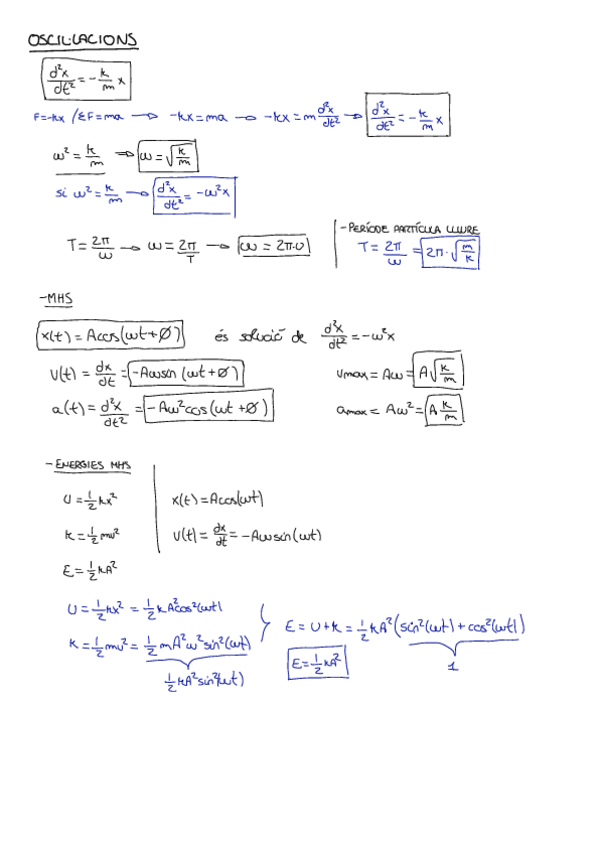 OSCIL·LACIONS
d²x/dt² = -k/m x
F=-kx /ΣF=ma → -kx=ma → -kx=m d²x/dt² → d²x/dt² = -k/m x
ω² = k/m → ω = √(k/m)
si ω² = k/m → d²x/dt² = -ω²x
T = 2π/ω → ω = 2π/T → ω = 2π·υ
- PERÍODE PARTÍCULA LLIURE
T = 2π/ω = 2π·√(m/k)
- MHS
x(t) = Acos(ωt+Ø) és solució de d²x/dt² = -ω²x
v(t) = dx/dt = -Aωsin(ωt+Ø) vmax = Aω = A√(k/m)
a(t) = d²x/dt² = -Aω²cos(ωt+Ø) amax = Aω² = A k/m
- ENERGIES MHS
U = 1/2 kx² x(t) = Acos(ωt)
K = 1/2 mv² v(t) = dx/dt = -Aωsin(ωt)
E = 1/2 kA²
U = 1/2 kx² = 1/2 kA²cos²(ωt)
K = 1/2 mv² = 1/2 mA²ω²sin²(ωt)
1/2 kA²sin²(ωt)
E = U+K = 1/2 kA²(sin²(ωt) + cos²(ωt))
1
E = 1/2 kA²